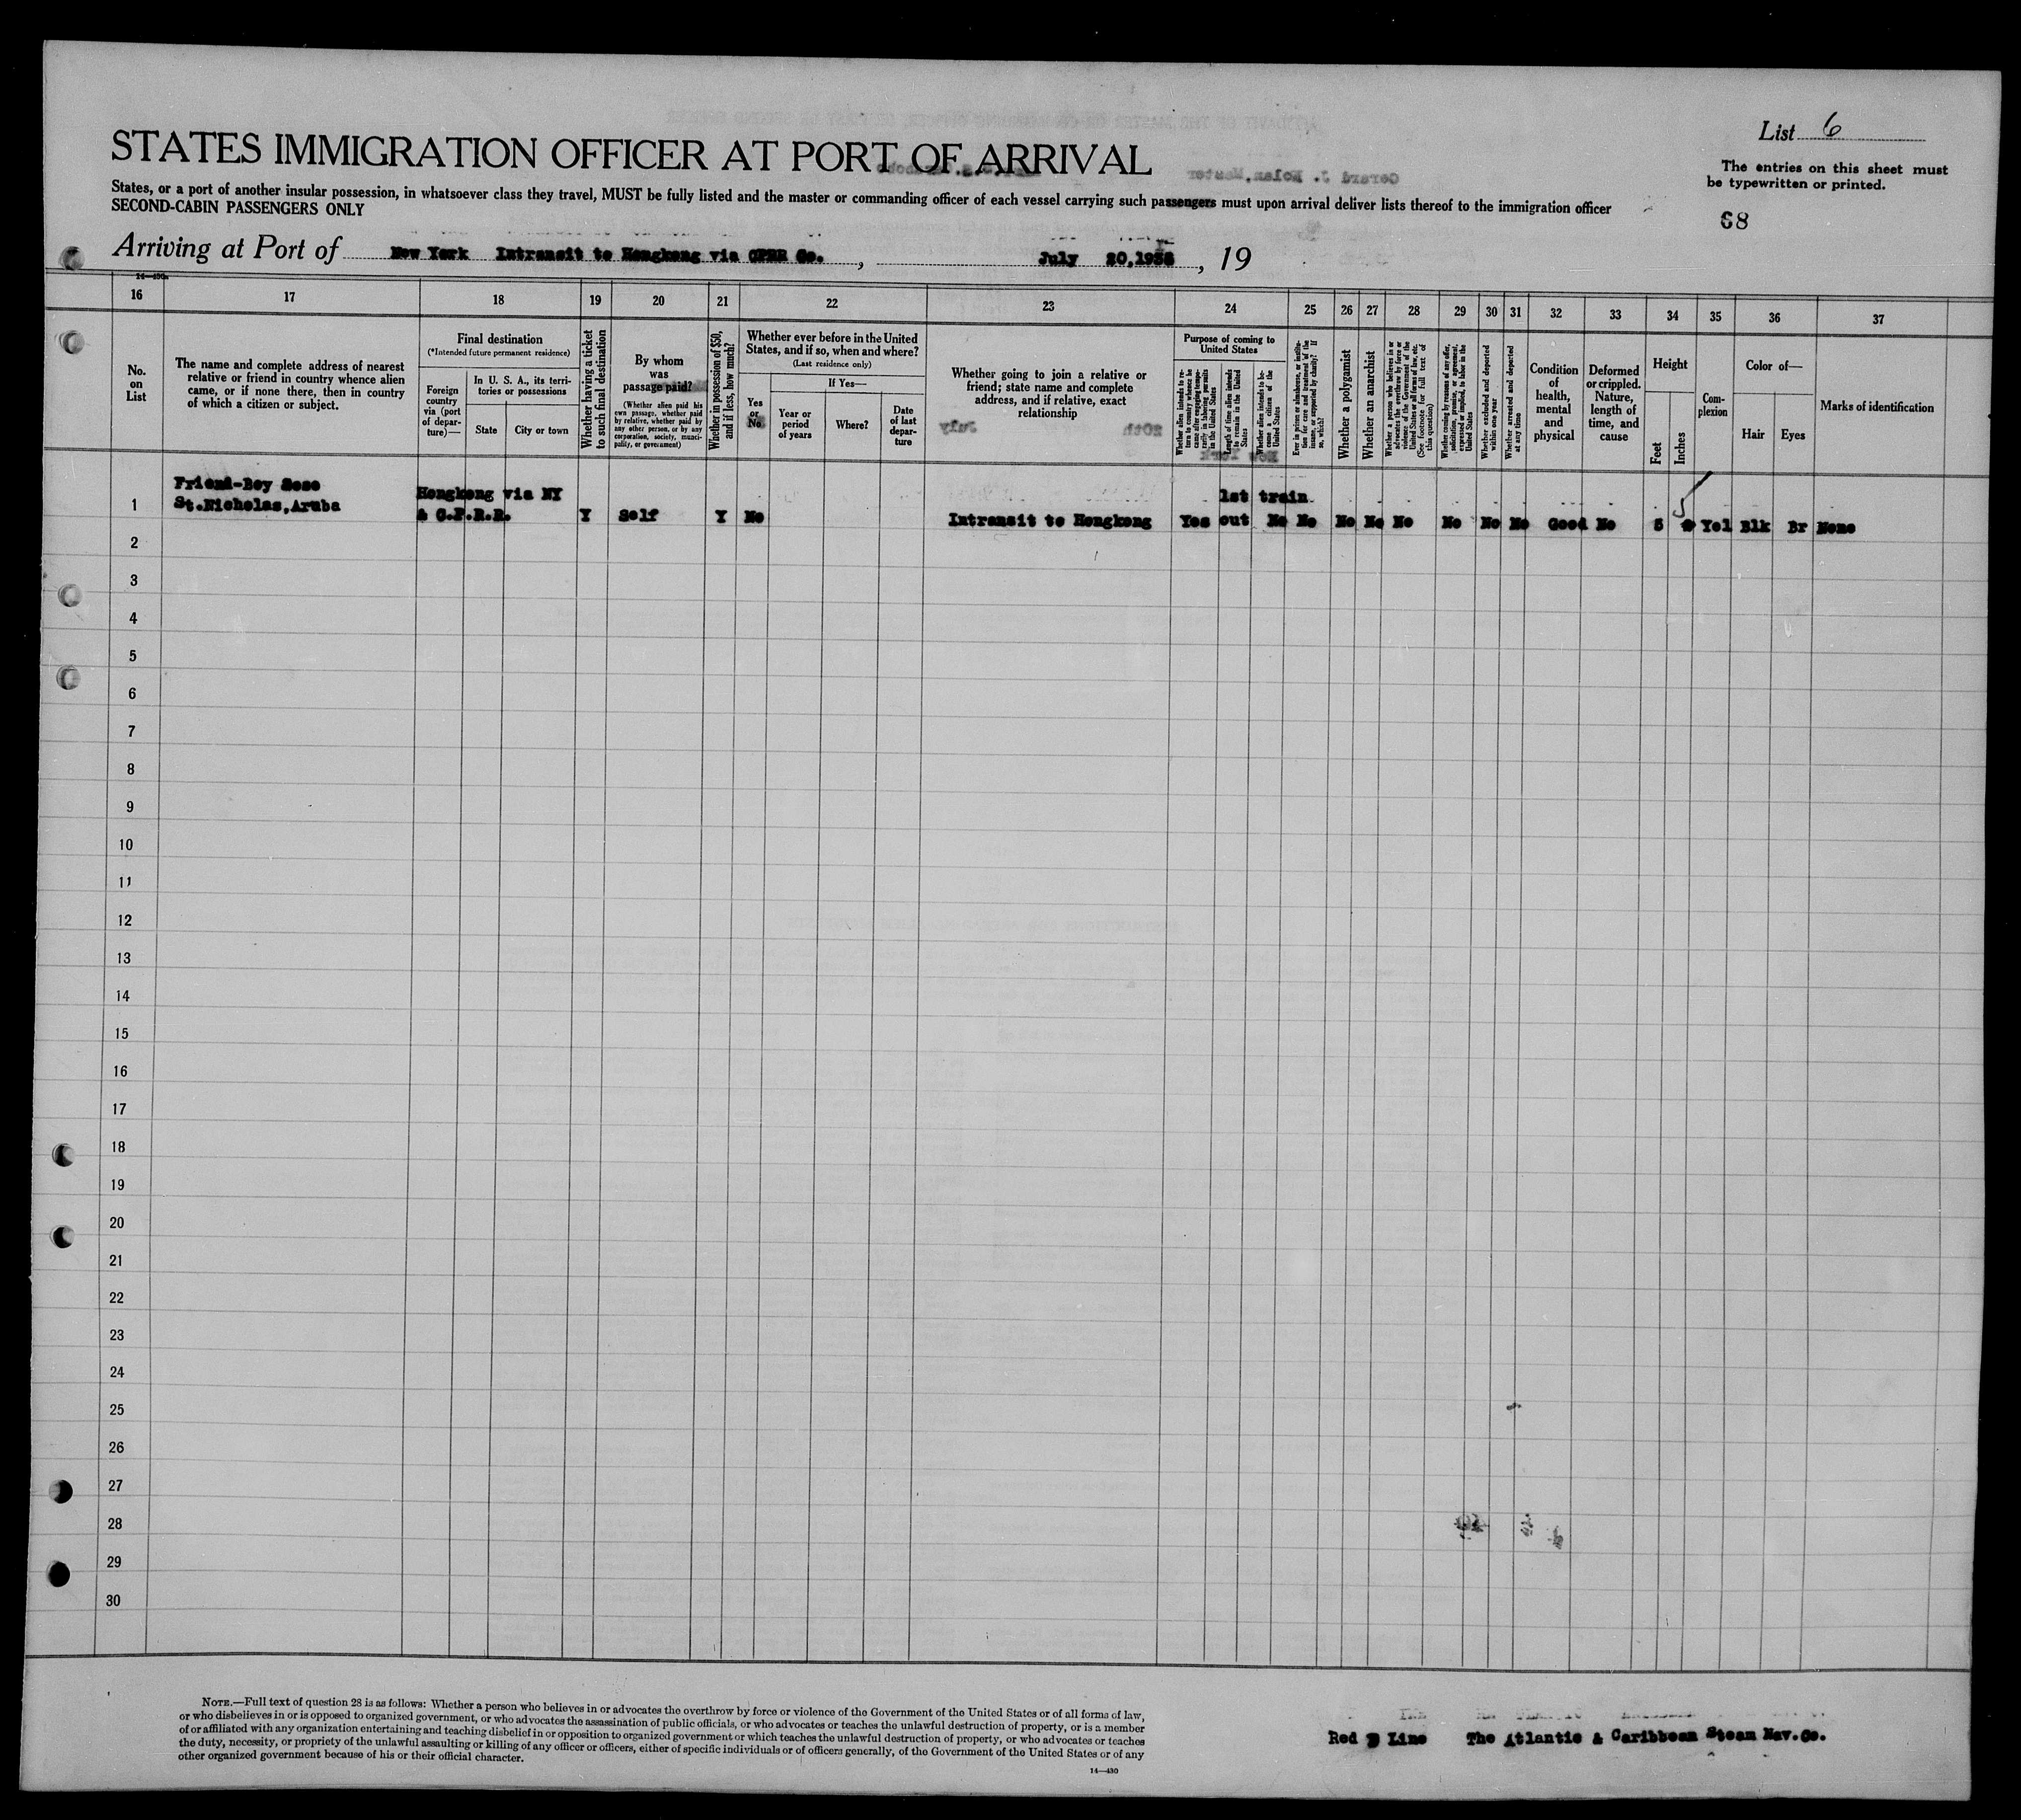 List 6
STATES IMMIGRATION OFFICER AT PORT OF ARRIVAL
The entries on this sheet must
be typewritten or printed.
States, or a port of another insular possession, in whatsoever class they travel, MUST be fully listed and the master or commanding officer of each vessel carrying such passengers must upon arrival deliver lists thereof to the immigration officer
SECOND-CABIN PASSENGERS ONLY
68
Arriving at Port of New York Intransit to Hongkong via CPRR Co., July 20, , 19
14—430
16 17 18 19 20 21 22 23 24 25 26 27 28 29 30 31 32 33 34 35 36 37
No.
on
List
The name and complete address of nearest
relative or friend in country whence alien
came, or if none there, then in country
of which a citizen or subject.
Final destination
(*Intended future permanent residence)
Foreign
country
via (port
of depar-
ture)—
In U. S. A., its terri-
tories or possessions
State
City or town
Whether having a ticket
to such final destination
By whom
was
passage paid?
(Whether alien paid his
own passage, whether paid
by relative, whether paid by
any other person, or by any
corporation, society, munici-
pality, or government)
Whether in possession of $50,
and if less, how much?
Whether ever before in the United
States, and if so, when and where?
(Last residence only)
Yes
or
No
If Yes—
Year or
period
of years
Where?
Date
of last
depar-
ture
Whether going to join a relative or
friend; state name and complete
address, and if relative, exact
relationship
Purpose of coming to
United States
Whether alien intends to re-
turn to country whence he
came after engaging tempo-
rarily in laboring pursuits
in the United States
Length of time alien intends
to remain in the United
States
Whether alien intends to be-
come a citizen of the
United States
Ever in prison or almshouse, or institu-
tion for care and treatment of the
insane, or supported by charity? If
so, which?
Whether a polygamist
Whether an anarchist
Whether a person who believes in or
advocates the overthrow by force or
violence of the Government of the
United States or all forms of law, etc.
(See footnote for full text of
this question)
Whether coming by reason of any offer,
solicitation, promise, or agreement,
expressed or implied, to labor in the
United States
Whether excluded and deported
within one year
Whether arrested and deported
at any time
Condition
of
health,
mental
and
physical
Deformed
or crippled.
Nature,
length of
time, and
cause
Height
Feet
Inches
Com-
plexion
Color of—
Hair
Eyes
Marks of identification
Friend-Boy Sose
St.Nicholas,Aruba
Hongkong via NY
& C.P.R.R.
1st train
5
1 Y Self Y No Intransit to Hongkong Yes out No No No No No No No No Good No 5 Yel Blk Br None
2
3
4
5
6
7
8
9
10
11
12
13
14
15
16
17
18
19
20
21
22
23
24
25
26
27
28
29
30
NOTE.—Full text of question 28 is as follows: Whether a person who believes in or advocates the overthrow by force or violence of the Government of the United States or of all forms of law,
or who disbelieves in or is opposed to organized government, or who advocates the assassination of public officials, or who advocates or teaches the unlawful destruction of property, or is a member
of or affiliated with any organization entertaining and teaching disbelief in or opposition to organized government or which teaches the unlawful destruction of property, or who advocates or teaches
the duty, necessity, or propriety of the unlawful assaulting or killing of any officer or officers, either of specific individuals or of officers generally, of the Government of the United States or of any
other organized government because of his or their official character.
14—430
Red D Line The Atlantic & Caribbean Steam Nav.Co.